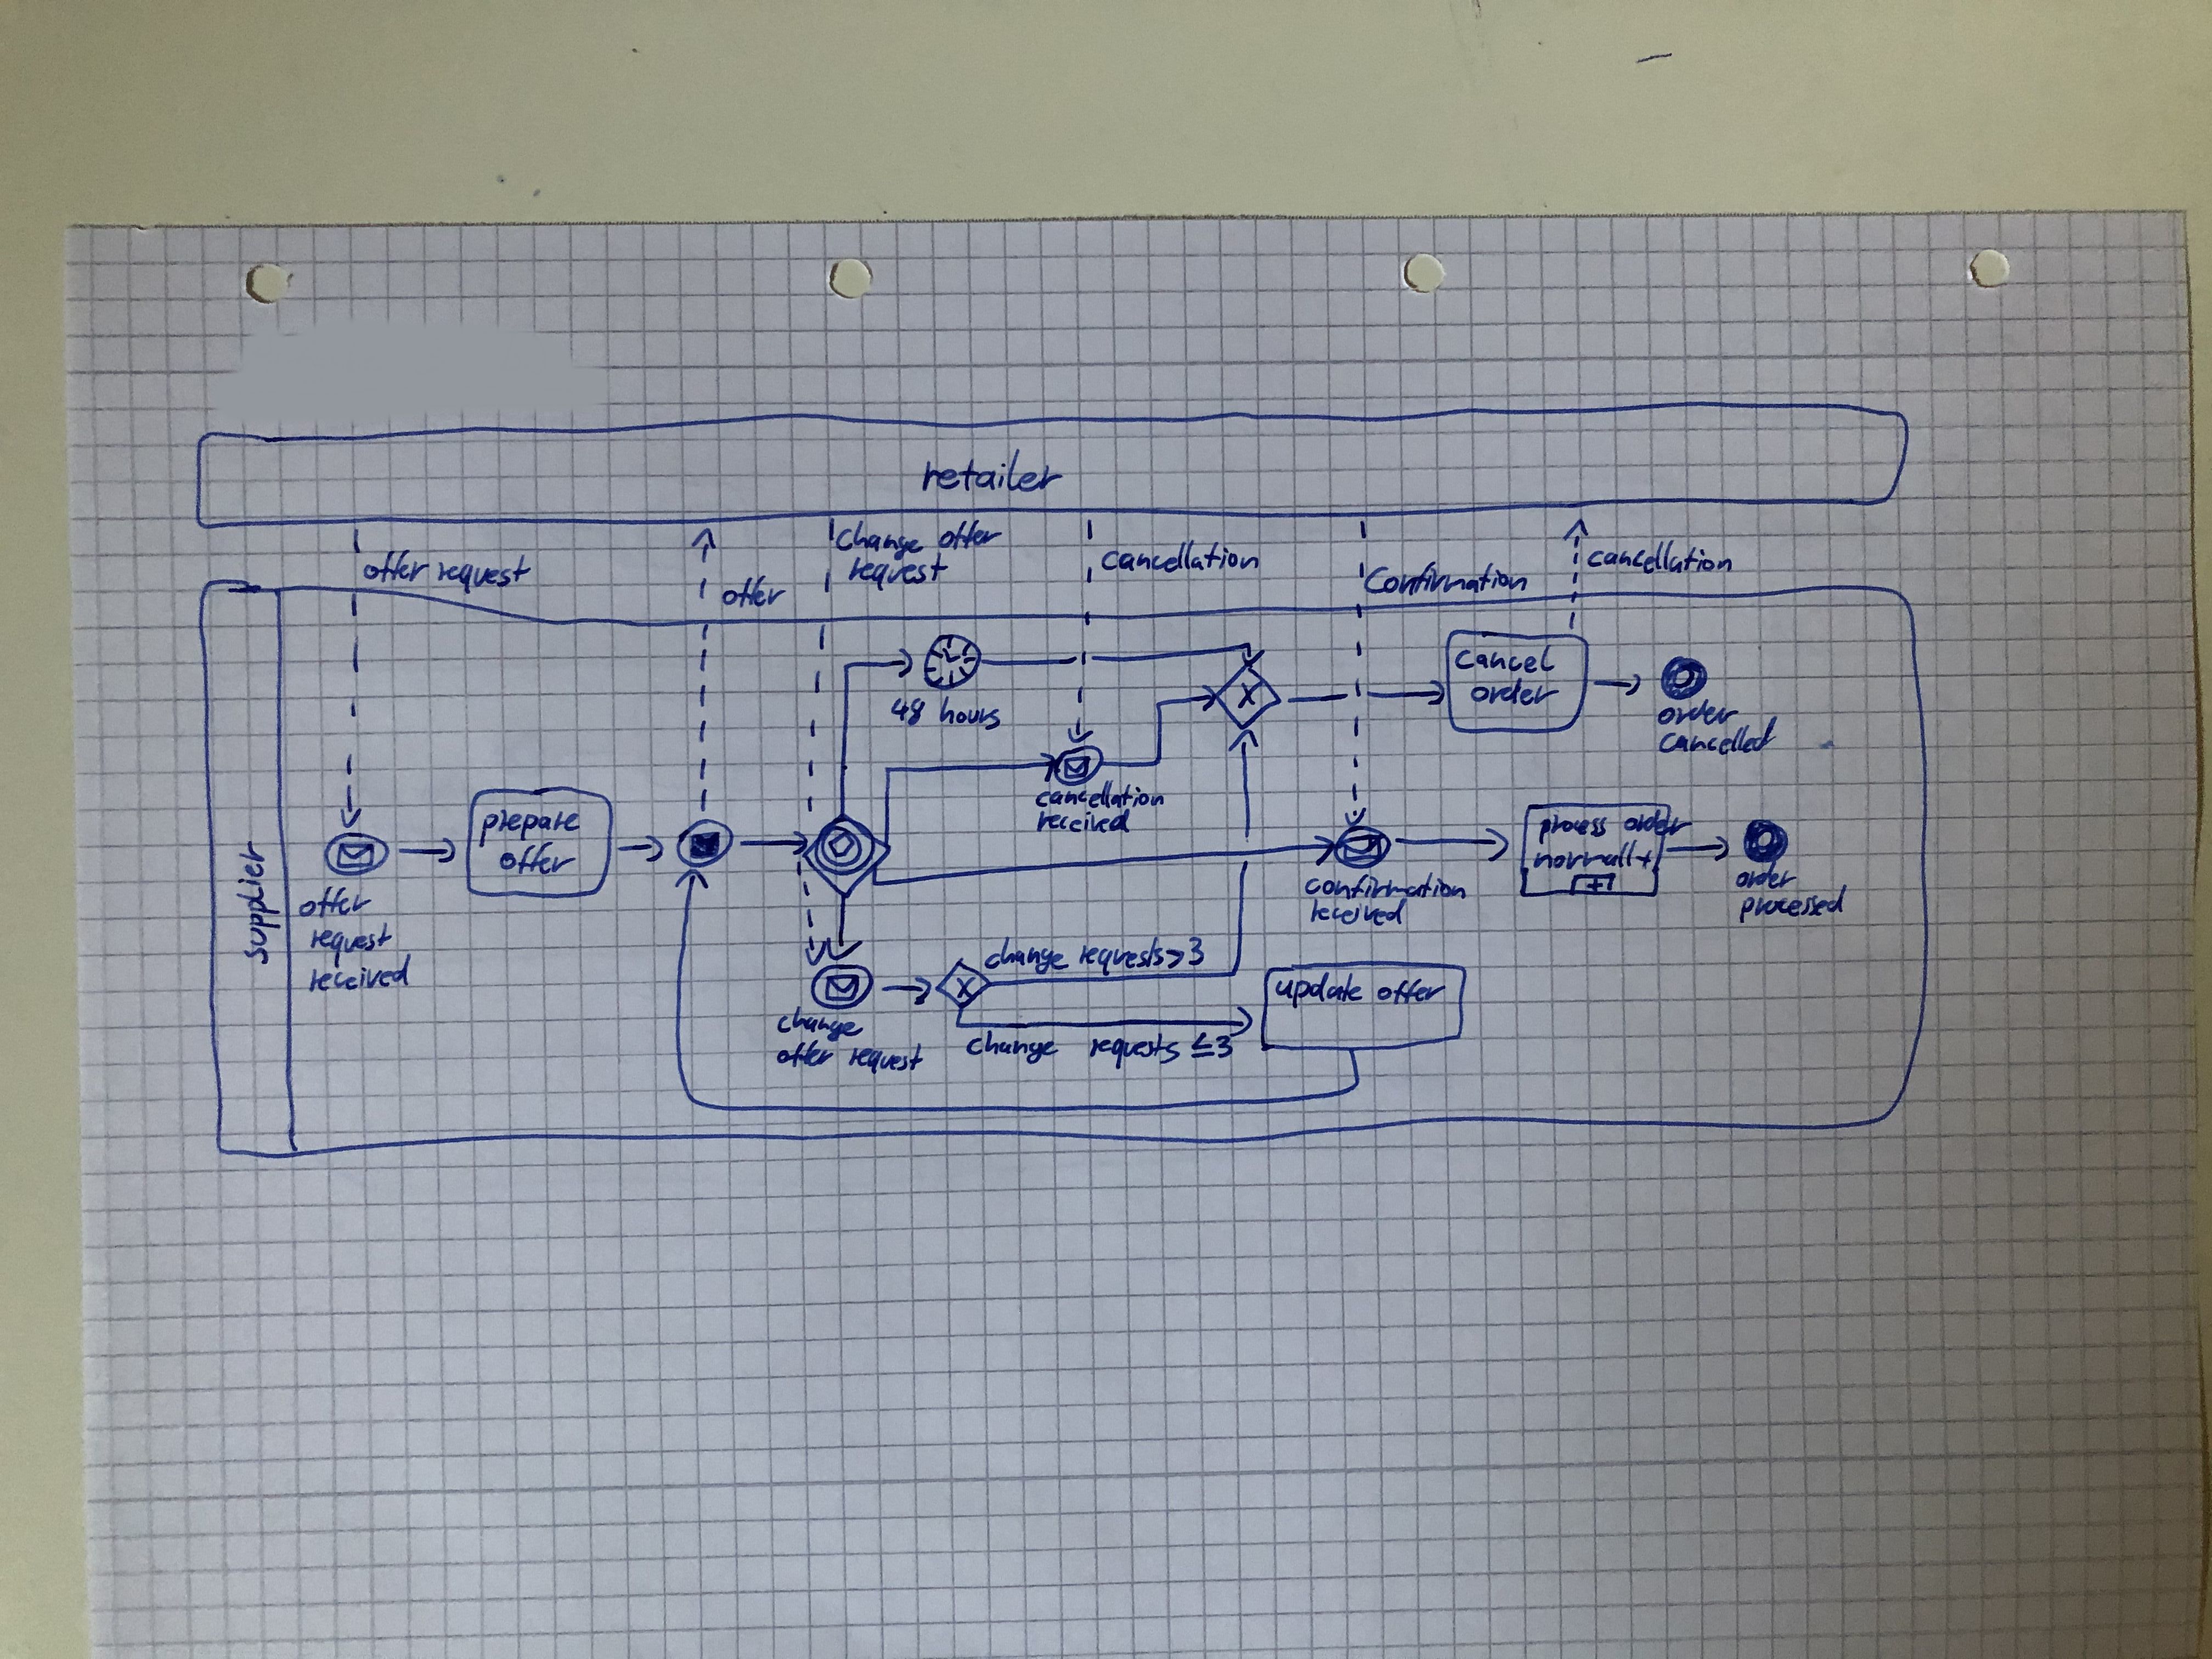 retailer
offer request
offer
change offer
request
cancellation
Confirmation
cancellation
supplier
48 hours
X
cancel
order
order
cancelled
cancellation
received
prepare
offer
offer
request
received
confirmation
received
process order
normally
+
order
processed
change
offer request
X
change requests>3
change requests ≤3
update offer